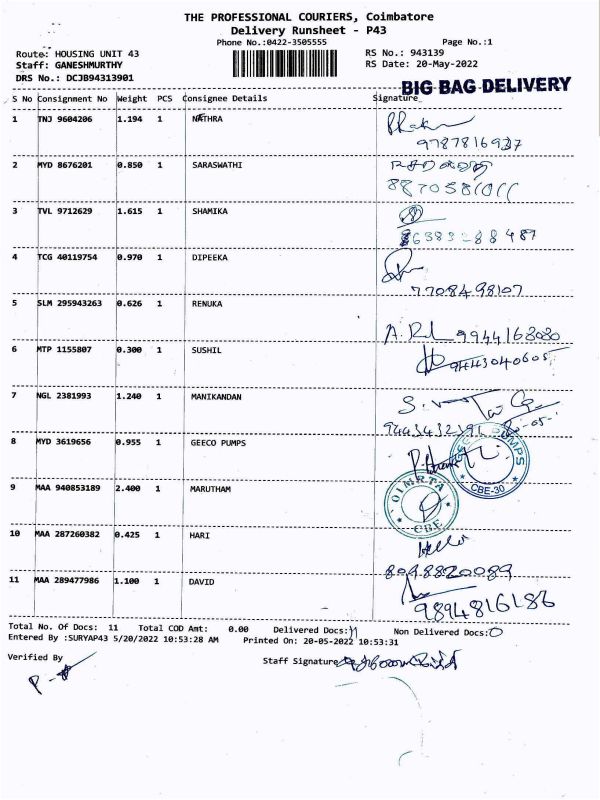 THE PROFESSIONAL COURIERS, Coimbatore
Delivery Runsheet - P43
Phone No.:0422-3505555 Page No.:1
Route: HOUSING UNIT 43 RS No.: 943139
Staff: GANESHMURTHY RS Date: 20-May-2022
DRS No.: DCJB94313901
BIG BAG DELIVERY
S No Consignment No Weight PCS Consignee Details Signature
1 TNJ 9604206 1.194 1 NATHRA
9787816937
2 MYD 8676201 0.850 1 SARASWATHI
3 TVL 9712629 1.615 1 SHAMIKA
4 TCG 40119754 0.970 1 DIPEEKA
7708498107
5 SLM 295943263 0.626 1 RENUKA
9944168080
6 MTP 1155807 0.300 1 SUSHIL
9443040605
7 NGL 2381993 1.240 1 MANIKANDAN
8 MYD 3619656 0.955 1 GEECO PUMPS
PUMPS
CBE-30
9 MAA 940853189 2.400 1 MARUTHAM
CBE
10 MAA 287260382 0.425 1 HARI
8098820089
11 MAA 289477986 1.100 1 DAVID
9894816186
Total No. Of Docs: 11 Total COD Amt: 0.00 Delivered Docs: 11 Non Delivered Docs: 0
Entered By :SURYAP43 5/20/2022 10:53:28 AM Printed On: 20-05-2022 10:53:31
Verified By Staff Signature